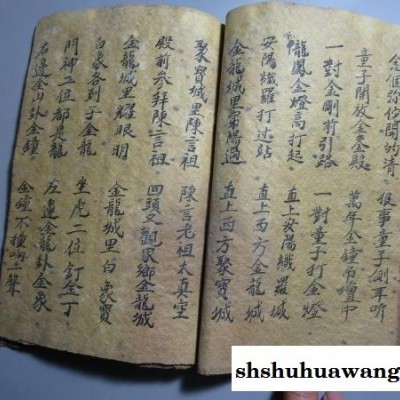 金個弥你問的清 报事童子側耳听
童子開放金金殿 萬年金鐘吊壇中
一對金剛前引路 一對童子打金燈
幢鳳金燈高打起 直上安陽織羅城
安陽織羅打过站 直上西方金龍城
金龍城里富場過 直上西方聚寶城
聚寶城里陳言祖 陳言老祖太真空
殿前参拜陳言祖 回頭又觀家鄉金龍城
金龍城里耀眼明 金龍城里白象寶
白象各到子金龍 坐虎二位釘金丁
門神二位都是龍 左邊金龍卦金象
右邊金山卦金鐘 金鐘不撞响一聲
shshuhuawang